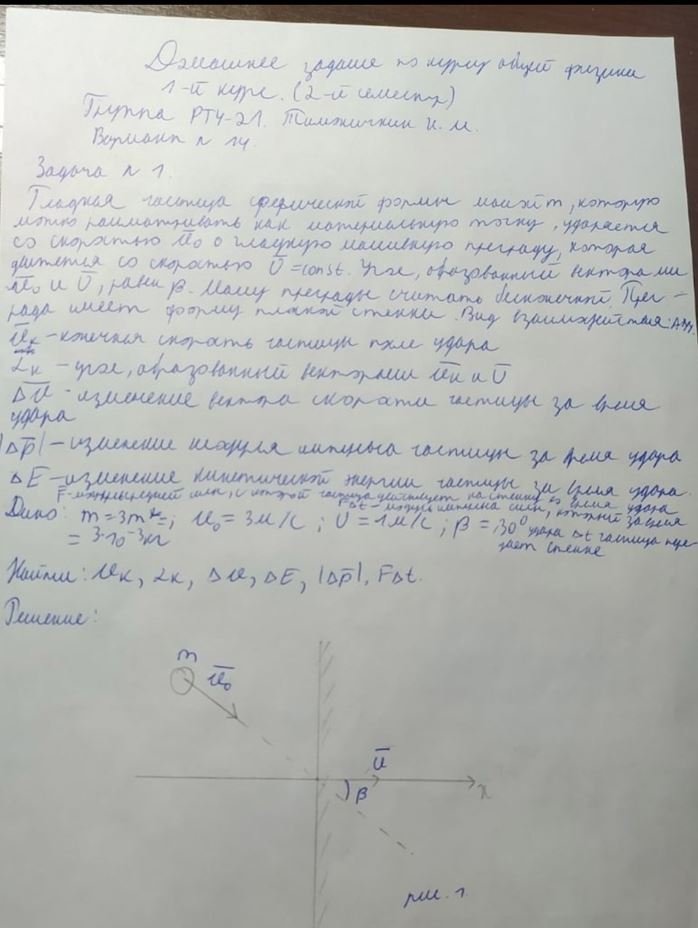 Домашнее задание по курсу общей физики
1-й курс. (2-й семестр)
Группа РТ4-21. И. М.
Вариант n 14.
Задача n 1.
Гладкая частица сферической формы массой m, которую
можно рассматривать как материальную точку, ударяется
со скоростью u̅₀ о гладкую массивную преграду, которая
движется со скоростью U̅ = const. Угол, образованный векторами
u̅₀ и U̅, равен β. Массу преграды считать бесконечной. Прег-
рада имеет форму плоской стенки. Вид взаимодействия: АУУ
u̅ₖ - конечная скорость частицы после удара
αₖ - угол, образованный векторами u̅ₖ и U̅
Δu̅ - изменение вектора скорости частицы за время
удара
|Δp̅| - изменение модуля импульса частицы за время удара
ΔE - изменение кинетической энергии частицы за время удара.
F - силы, с которой частица действует на стенку во время удара
FΔt - модуль импульса силы, который за время
Дано: m = 3 = ; u₀ = 3 м/с ; U = 1 м/с ; β = 30⁰ удара Δt частица пере-
= 3·10⁻³ кг дает стенке
Найти: uₖ, αₖ, Δu, ΔE, |Δp̅|, FΔt.
Решение:
m
u̅₀
U̅
β
x
рис. 1.